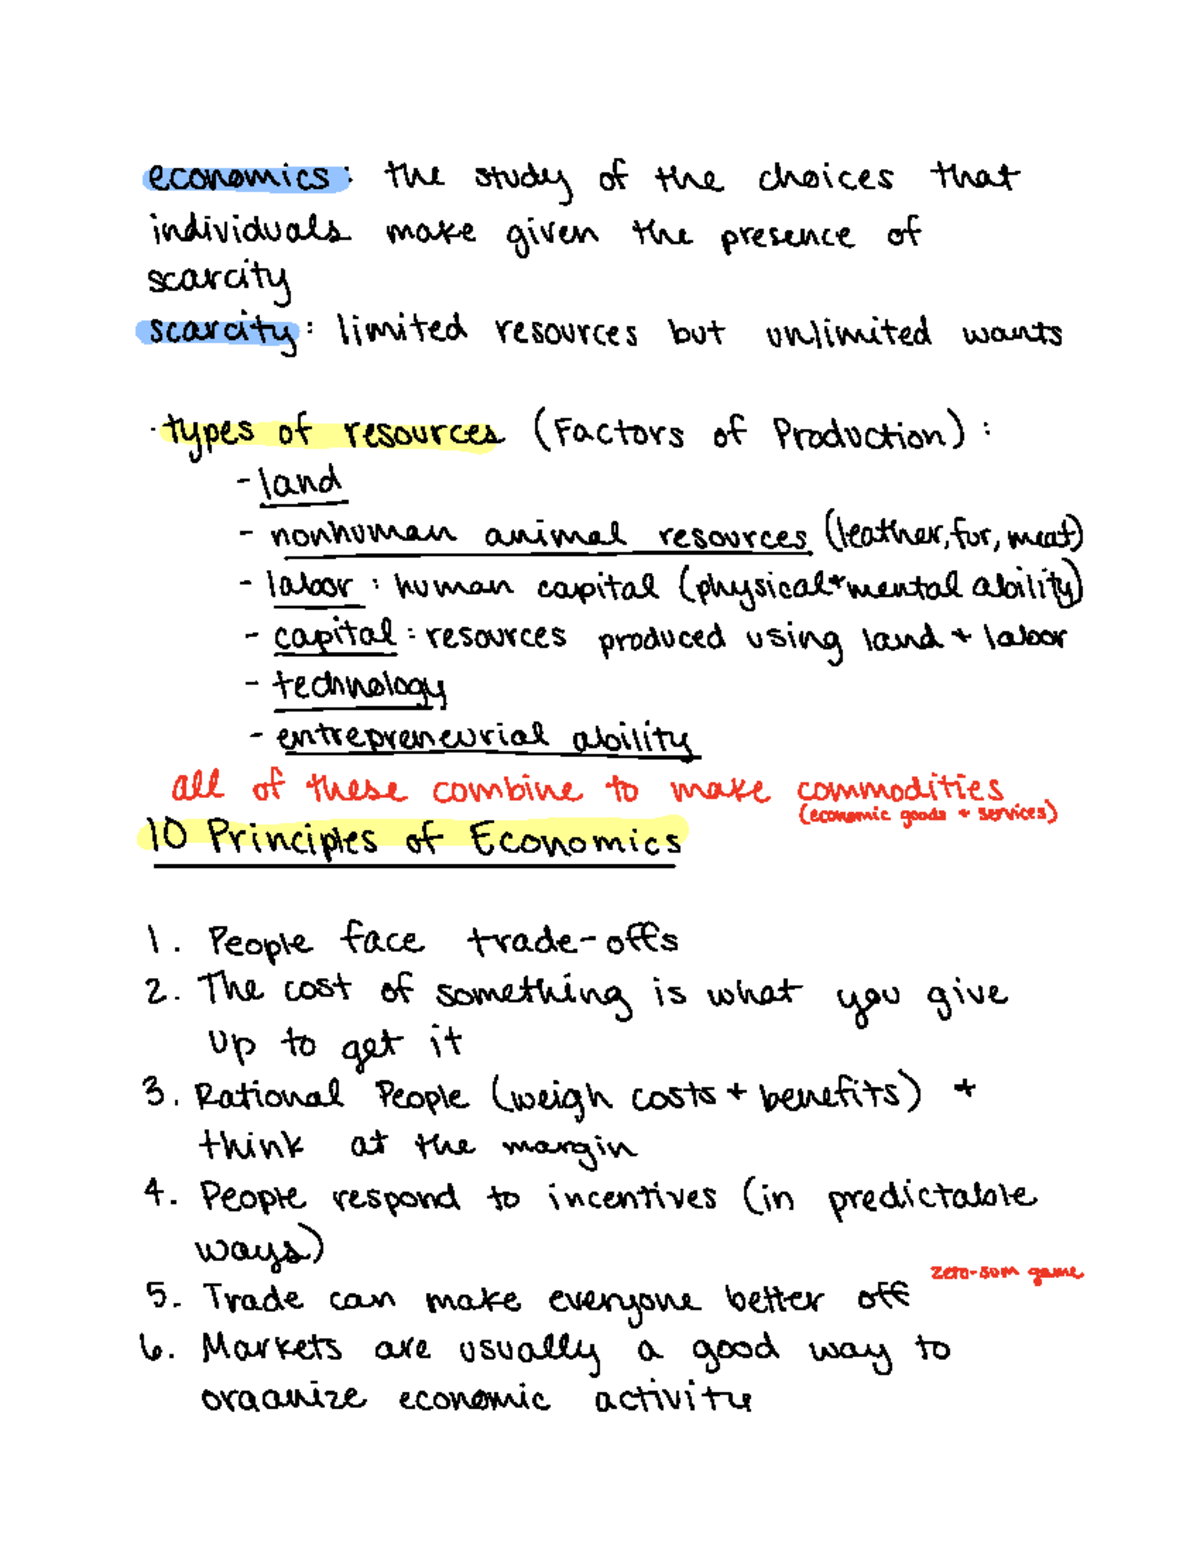 economics: the study of the choices that
individuals make given the presence of
scarcity
scarcity: limited resources but unlimited wants
· types of resources (Factors of Production):
- land
- nonhuman animal resources (leather, fur, meat)
- labor: human capital (physical + mental ability)
- capital: resources produced using land + labor
- technology
- entrepreneurial ability
all of these combine to make commodities
(economic goods + services)
10 Principles of Economics
1. People face trade-offs
2. The cost of something is what you give
up to get it
3. Rational People (weigh costs + benefits) +
think at the margin
4. People respond to incentives (in predictable
ways)
zero-sum game
5. Trade can make everyone better off
6. Markets are usually a good way to
organize economic activity